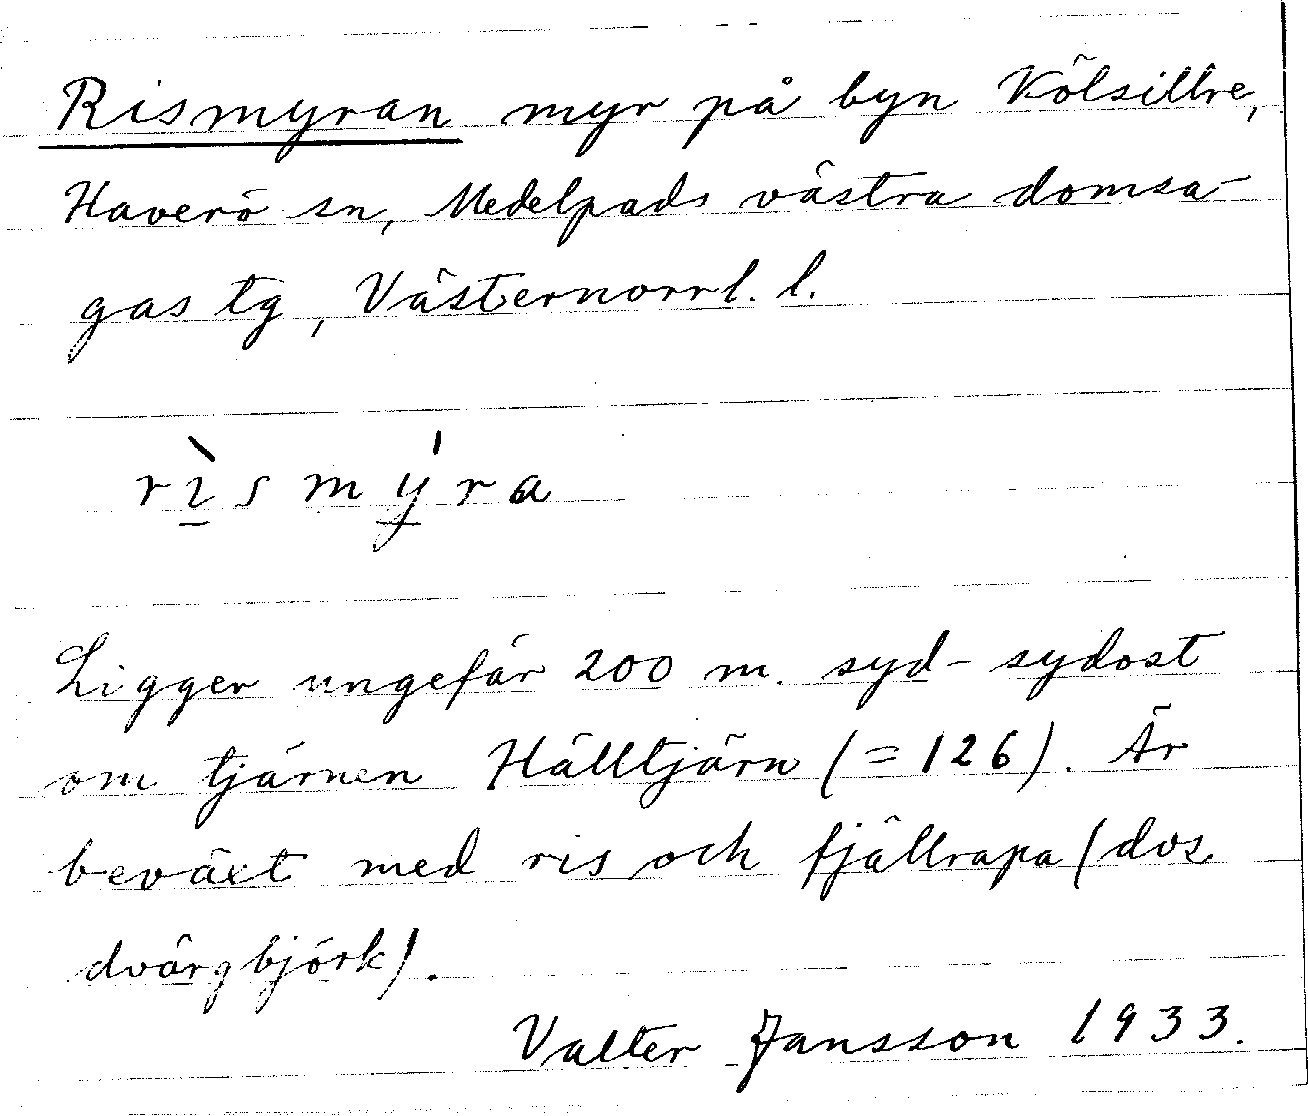 Rismyran myr på byn Kölsillre,
Haverö sn, Medelpads västra domsa-
gas tg, Västernorrl. l.
rìsmy̍ra
Ligger ungefär 200 m. syd-sydost
om tjärnen Hälltjärn (=126). Är
beväxt med ris och fjällrapa (dvs
dvärgbjörk).
Valter Jansson 1933.